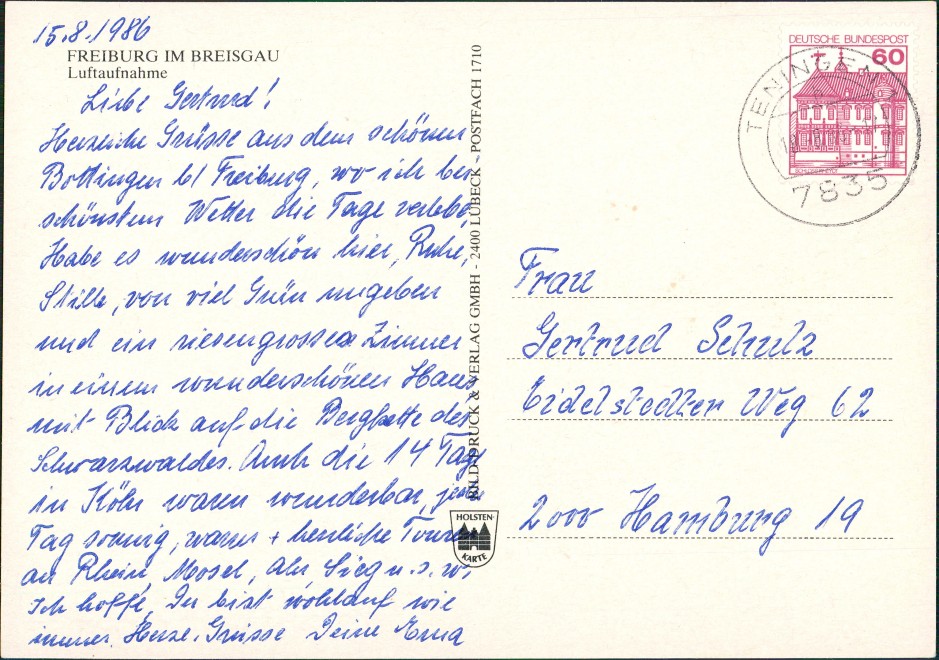 15.8.1986
FREIBURG IM BREISGAU
Luftaufnahme
Liebe Gertrud!
Herzliche Grüsse aus dem schönen
Bottingen b/ Freiburg, wo ich bei
schönstem Wetter die Tage verlebe,
Habe es wunderschön hier, Ruhe,
Stille, von viel Grün umgeben
und ein riesengrosses Zimmer
in einem wunderschönen Haus
mit Blick auf die Bergkette des
Schwarzwaldes. Auch die 14 Tage
in Köln waren wunderbar, jeden
Tag sonnig, warm + herrliche Touren
an Rhein, Mosel, Ahr, Sieg u.s.w.
Ich hoffe, Du bist wohlauf wie
immer. Herzl. Grüsse Deine Erna
BILD DRUCK & VERLAG GMBH - 2400 LÜBECK - POSTFACH 1710
HOLSTEN-
KARTE
DEUTSCHE BUNDESPOST
60
TENINGEN
7835
Frau
Gertrud Schulz
Eidelstedter Weg 62
2000 Hamburg 19